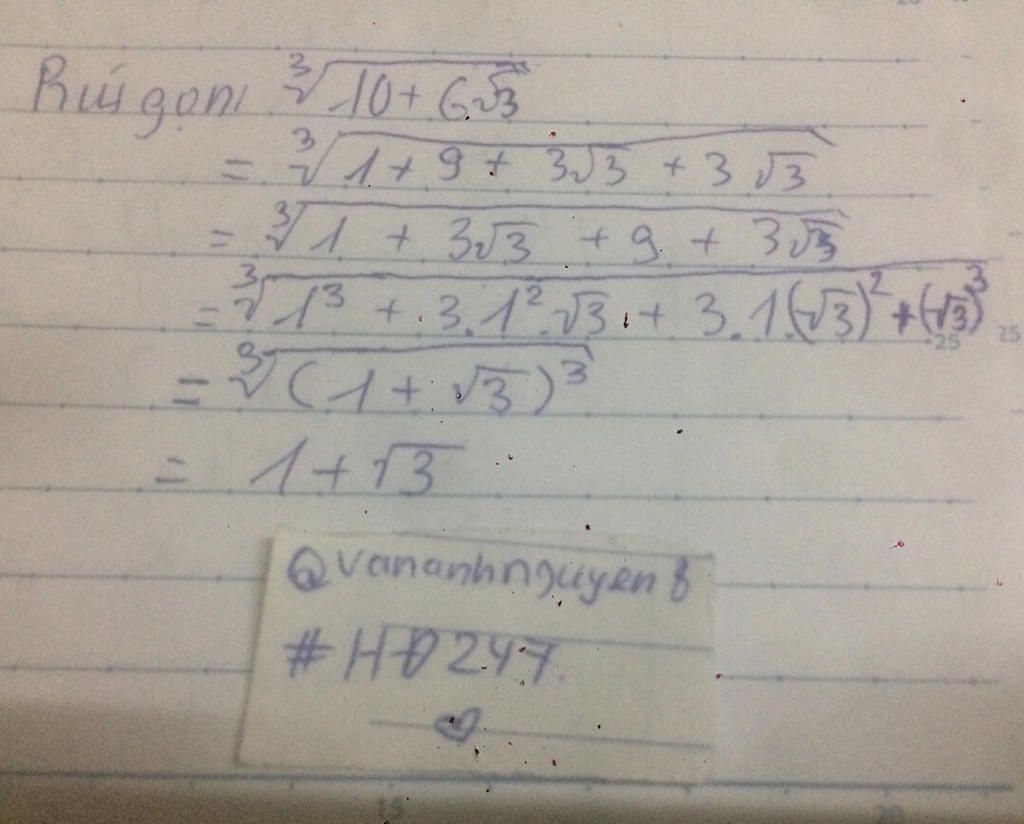 Rút gọn: ∛(10 + 6√3)
= ∛(1 + 9 + 3√3 + 3√3)
= ∛(1 + 3√3 + 9 + 3√3)
= ∛(1³ + 3.1².√3 + 3.1(√3)² + (√3)³)
= ∛((1 + √3)³)
= 1 + √3
@vananhnguyen8
#HĐ247.
25
25
15
20